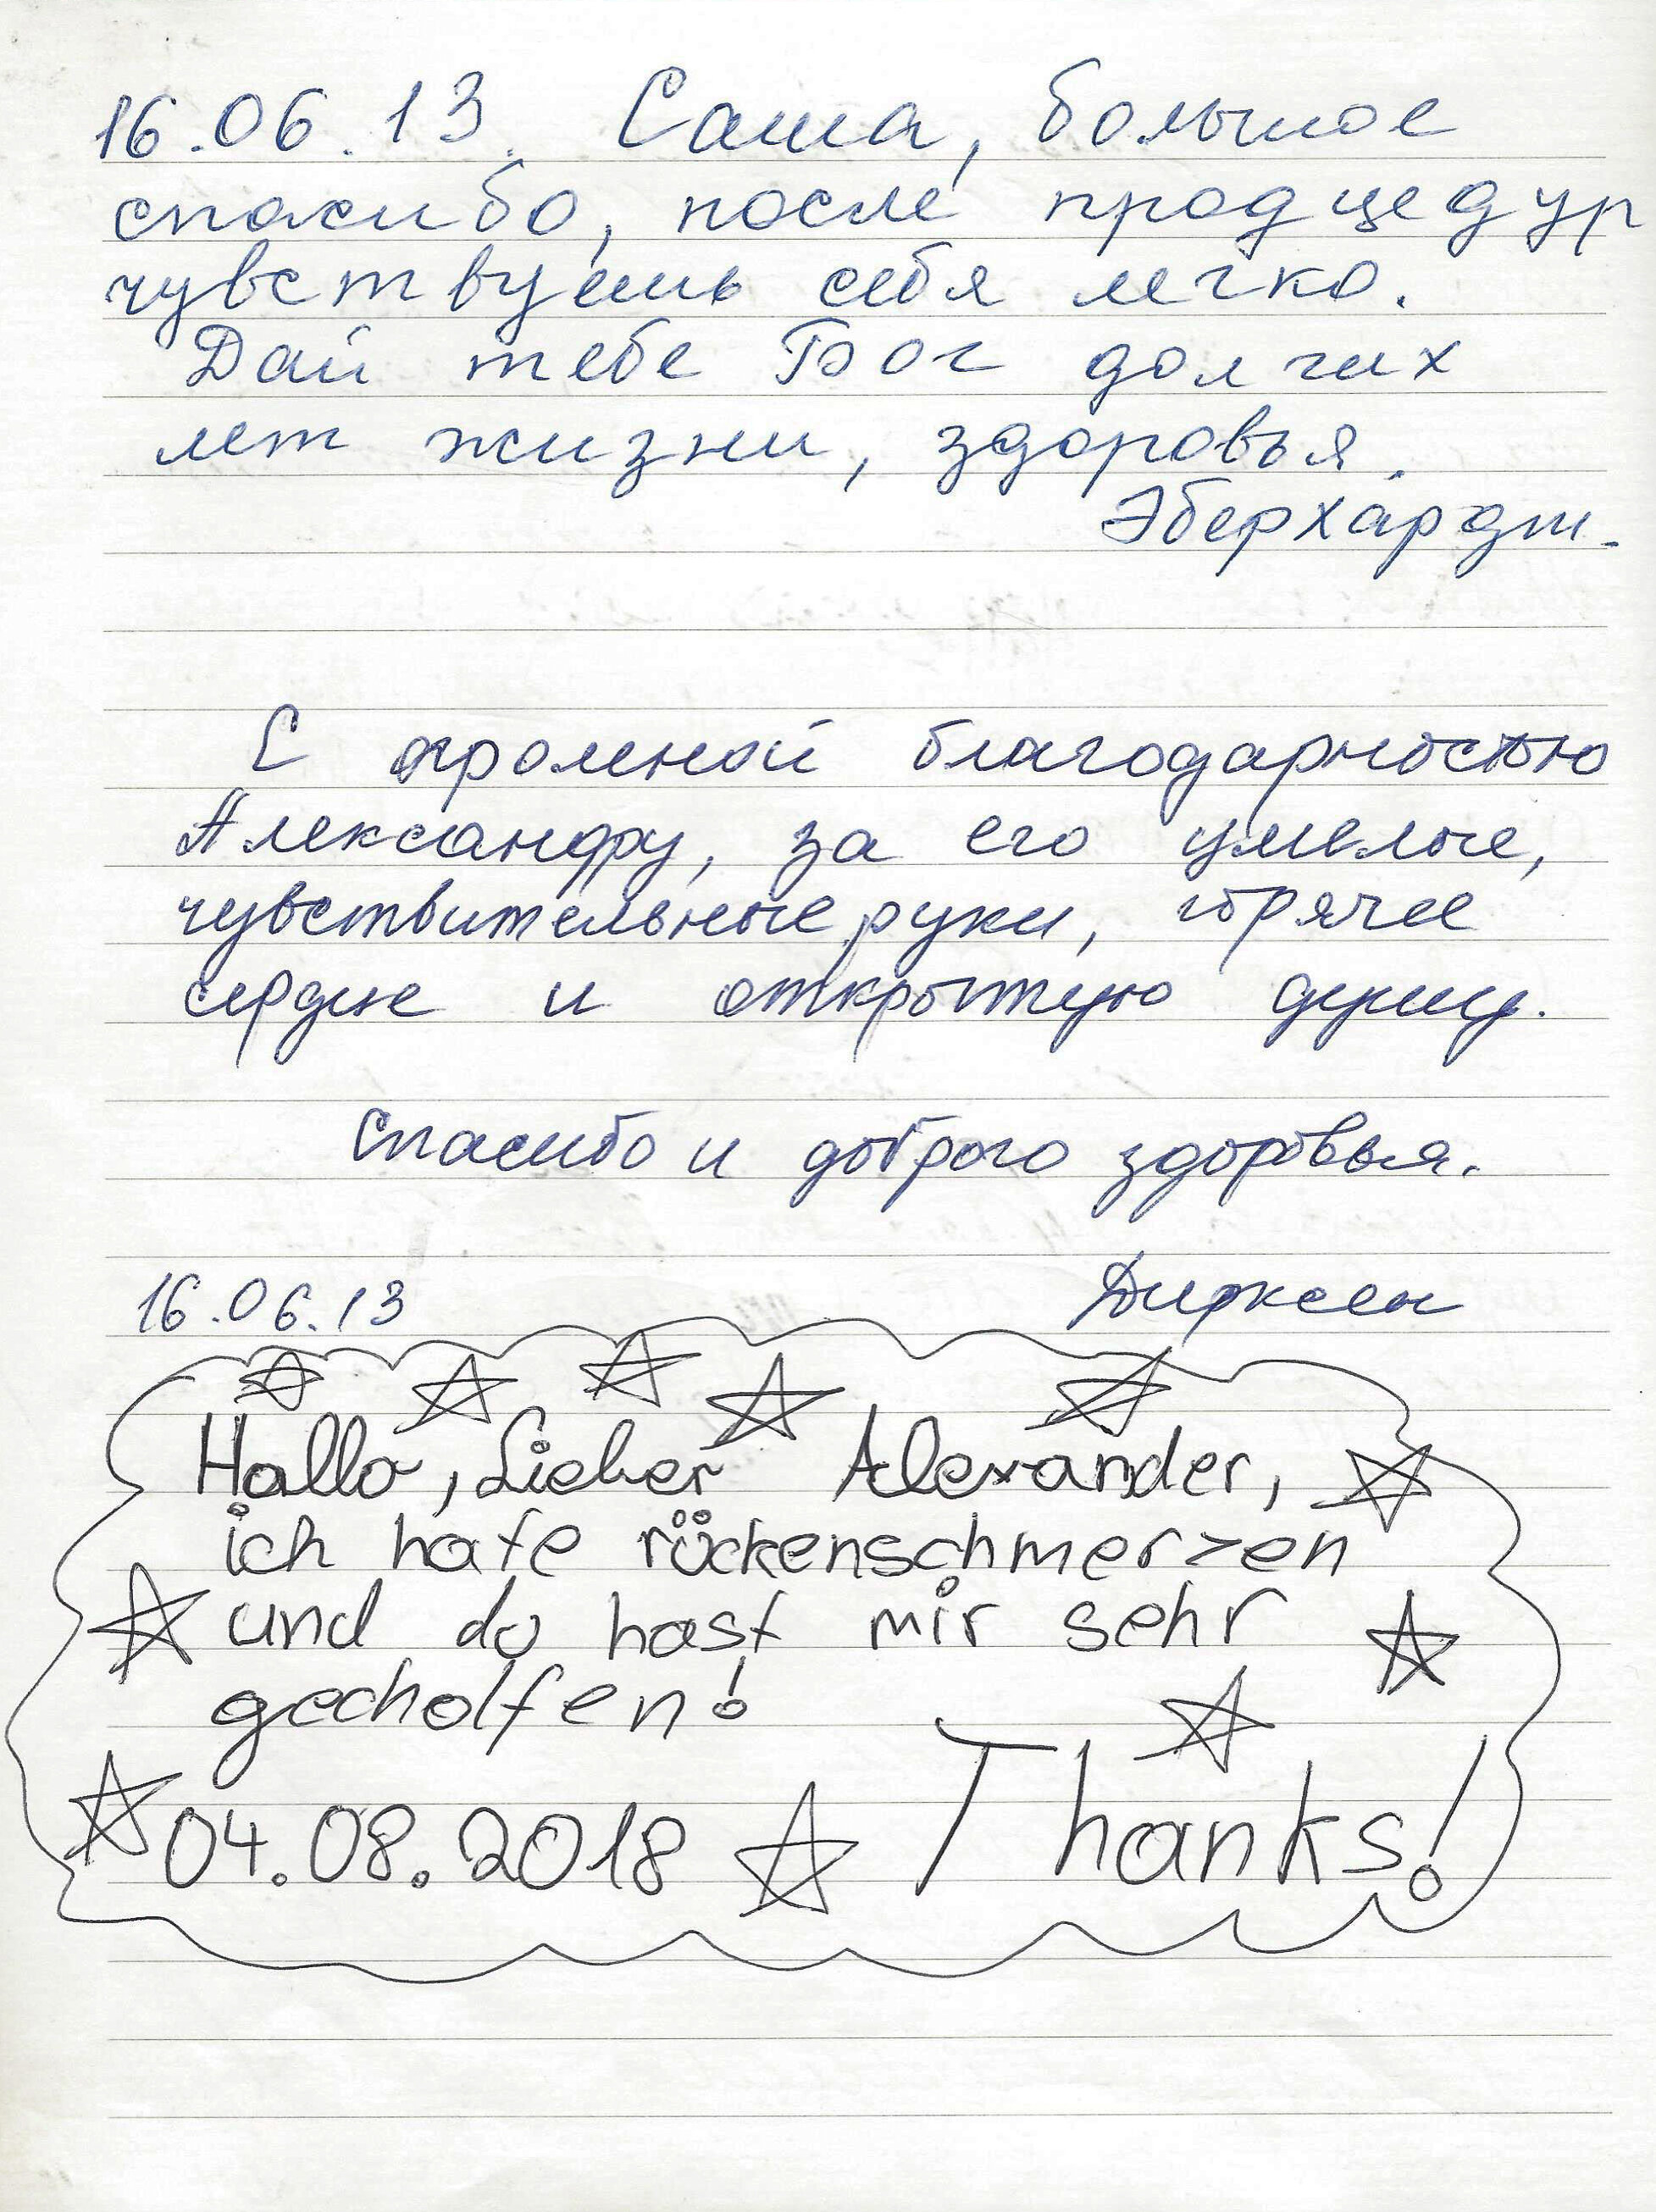 16.06.13. Саша, большое
спасибо, после продцедур
чувствуешь себя легко.
Дай тебе Бог долгих
лет жизни, здоровья.
Эберхардт.
С огромной благодарностью
Александру, за его умелые,
чувствительные руки, горячее
сердце и открытую душу.
Спасибо и доброго здоровья.
16.06.13 Дирксен
Hallo, Lieber Alexander,
ich hate rückenschmerzen
und du hast mir sehr
gecholfen!
04.08.2018 Thanks!